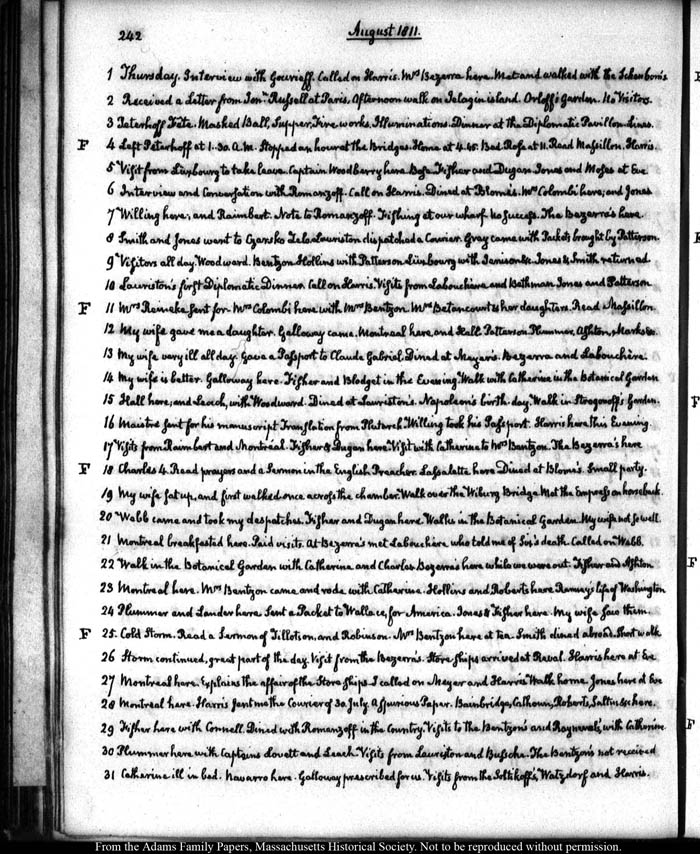 242 August 1811.
1 Thursday. Interview with Gourieff. Called on Harris. Mrs Bezerra here. Met and walked with the
2 Received a Letter from Jonn Russell at Paris. Afternoon walk on Jelagin island. Orloff's Garden. No Visitors.
3 Peterhoff Fête. Masked Ball, Supper, Fire works. Illuminations. Dinner at the Diplomatic Pavillon.
F 4 Left Peterhoff at 1.30. A.M. Stopped an hour at the Bridges. Home at 4.45. Bad. Rose at 11. Read Massillon. Harris.
5 Visit from Luxbourg to take leave. Captain Woodberry here. Fisher and Dugan Jones and Moses at Eve
6 Interview and Conversation with Romanzoff. Call on Harris. Dined at Blome's. Mrs Colombi here; and Jones
7 Willing here; and Raimbert. Note to Romanzoff. Fishing at our wharf. No success. The Bezerra's here.
8 Smith and Jones went to Czarsko Zelo. Lauriston dispatched a Courier. Gray came with Packets brought by Patterson.
9 Visitors all day. Woodward. Bentzon. Hollins with Patterson. Luxbourg with Jenison &c. Jones & Smith returned
10 Lauriston's first Diplomatic Dinner. Call on Harris. Visits from Labouchere and Bethman. Jones and Patterson
F 11 Mrs Reineke sent for. Mrs Colombi here with Mrs Bentzon. Mme Betancourt & her daughters. Read Massillon.
12 My wife gave me a daughter. Galloway came. Montreal here, and Hall. Patterson. Plummer. Ashton, Marks &c.
13 My wife very ill all day. Gave a Passport to Claude Gabriel. Dined at Meyer's. Bezerra and Labouchere.
14 My wife is better. Galloway here. Fisher and Blodget in the Evening. Walk with Catherine in the Botanical Garden
15 Hall here; and Leach, with Woodward. Dined at Lauriston's. Napoleon's birth-day. Walk in Strogonoff's Garden.
16 Maistre sent for his manuscript Translation from Plutarch. Willing took his Passport. Harris here this Evening.
17 Visits from Raimbert and Montréal. Fisher & Dugan here. Visit with Catherine to Mrs Bentzon. The Bezerra's here
F 18 Charles 4. Read prayers and a Sermon in the English Preacher. Lassalette here. Dined at Blome's. Small party.
19 My wife sat up, and first walked once across the chamber. Walk over the Wiburg Bridge. Met the Empress on horseback.
20 Wabb came and took my despatches. Fisher and Dugan here. Walks in the Botanical Garden. My wife not so well.
21 Montreal breakfasted here. Paid visits. At Bezerra's met Labouchere, who told me of Sir's death. Called on Wabb.
22 Walk in the Botanical Garden with Catherine and Charles. Bezerra's here while we were out. Fisher and Ashton
23 Montreal here. Mrs Bentzon came and rode with Catherine. Hollins and Roberts here. Ramsay's life of Washington
24 Plummer and Lander here. Sent a Packet to Wallace, for America. Jones & Fisher here. My wife saw them.
F 25. Cold Storm. Read a Sermon of Tillotson, and Robinson. Mrs Bentzon here at tea. Smith dined abroad. Short walk
26 Storm continued, great part of the day. Visit from the Bezerra's. Store ships arrived at Reval. Harris here at Eve
27 Montreal here. Explains the affair of the Store Ships. I called on Meyer and Harris. Walk home. Jones here at Eve
28 Montreal here. Harris sent me the Courier of 30. July. A spurious Paper. Bainbridge, Calhoun, Roberts, Saltus &c. here.
29 Fisher here with Connell. Dined with Romanzoff in the Country. Visits to the Bentzon's and Raynevals, with Catherine
30 Plummer here with Captains Lovett and Leach. Visits from Lauriston and Bussche. The Bentzon's not received
31 Catherine ill in bed. Navarro here. Galloway prescribed for us. Visits from the Soltikoff's, Watzdorf and Harris.
From the Adams Family Papers, Massachusetts Historical Society. Not to be reproduced without permission.